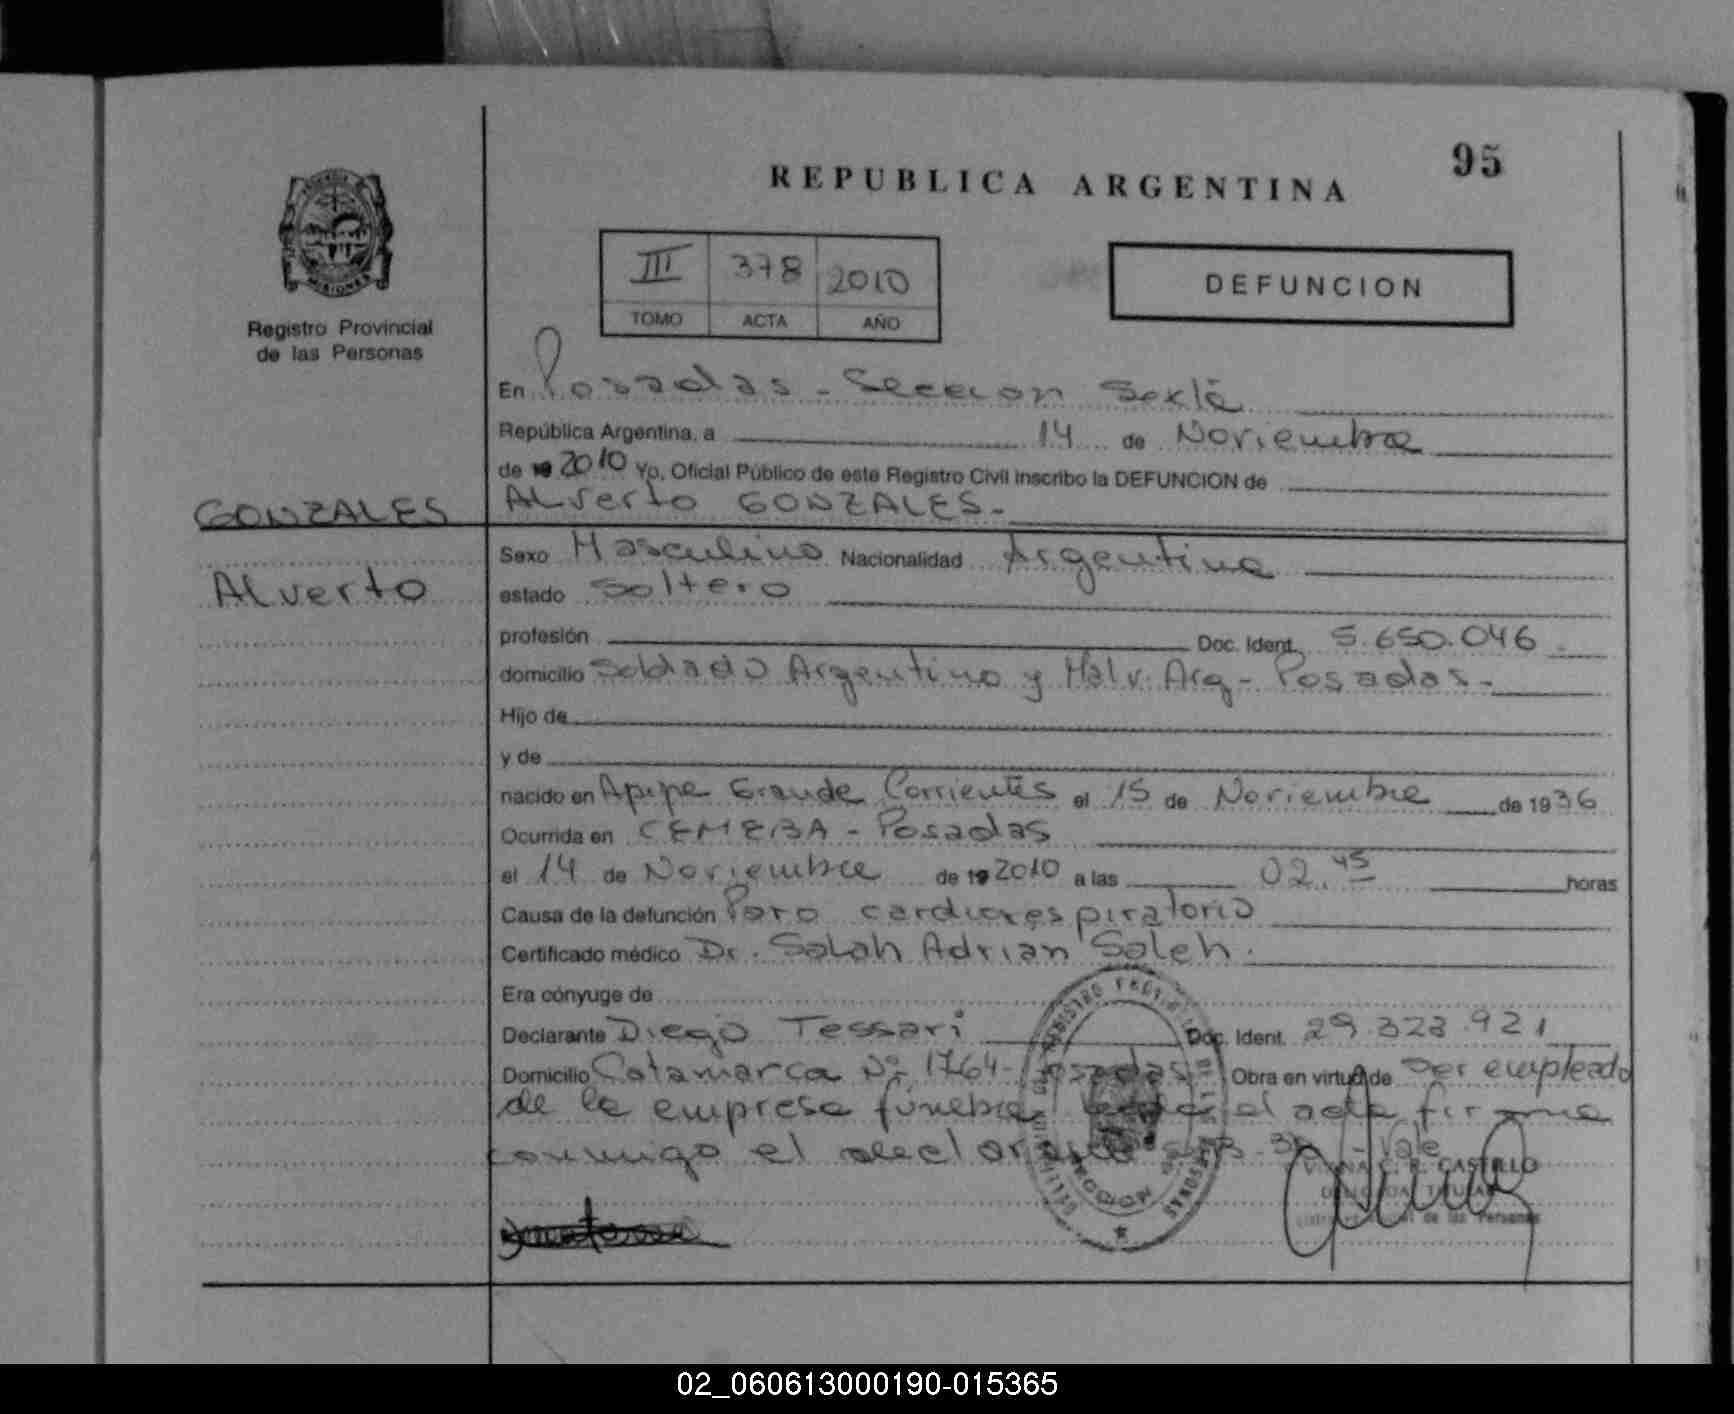 95
REPUBLICA ARGENTINA
MISIONES
Registro Provincial
de las Personas
III 378 2010
TOMO ACTA AÑO
DEFUNCION
En Posadas - Seccion Sexta
República Argentina, a 14 de Noviembre
de 19 2010 Yo, Oficial Público de este Registro Civil inscribo la DEFUNCION de
GONZALES
Alverto GONZALES.-
Alverto
Sexo Masculino Nacionalidad Argentina
estado Soltero
profesión Doc. Ident. 5.650.046
domicilio Soldado Argentino y Malv. Arg - Posadas.-
Hijo de
y de
nacido en Apipe Grande Corrientes el 15 de Noviembre de 1936
Ocurrida en CEMEBA - Posadas
el 14 de Noviembre de 19 2010 a las 02.45 horas
Causa de la defunción Paro cardiorespiratorio
Certificado médico Dr. Salah Adrian Saleh.
Era cónyuge de
Declarante Diego Tessari Doc. Ident. 29.323.921
Domicilio Catamarca Nº 1764 - Posadas Obra en virtud de ser empleado
de la empresa fúnebre el acta firma
conmigo el declarante Vale
VIVIANA C. R. CASTILLO
DELEGADA TITULAR
de las Personas
02_060613000190-015365